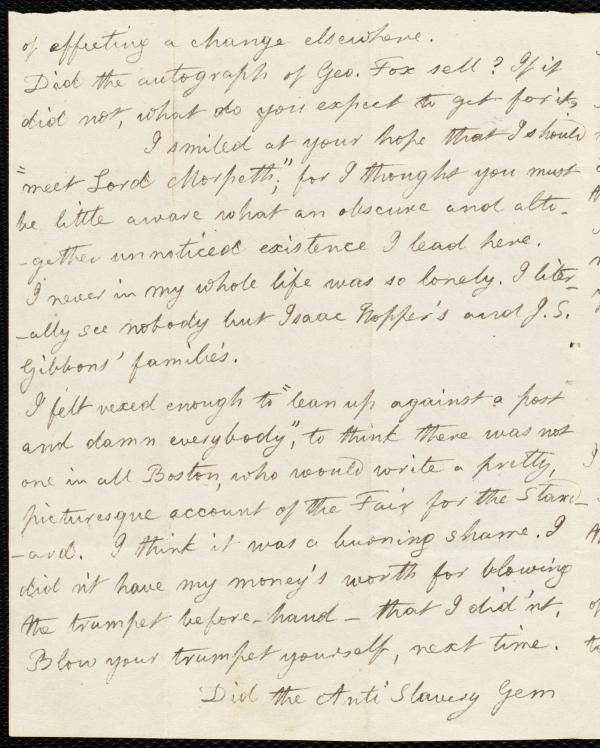 of effecting a change elsewhere.
Did the autograph of Geo. Fox sell? If it
did not, what do you expect to get for it,
I smiled at your hope that I should
"meet Lord Morpeth," for I thought you must
be little aware what an obscure and alto-
-gether unnoticed existence I lead here.
I never in my whole life was so lonely. I liter-
-ally see nobody but Isaac Hopper's and J. S.
Gibbons' families.
I felt vexed enough to "lean up against a post
and damn everybody", to think there was not
one in all Boston, who would write a pretty,
picturesque account of the Fair for the Stand-
-ard. I think it was a burning shame. I
did n't have my money's worth for blowing
the trumpet before-hand - that I did'nt.
Blow your trumpet yourself, next time.
Did the Anti Slavery Gem